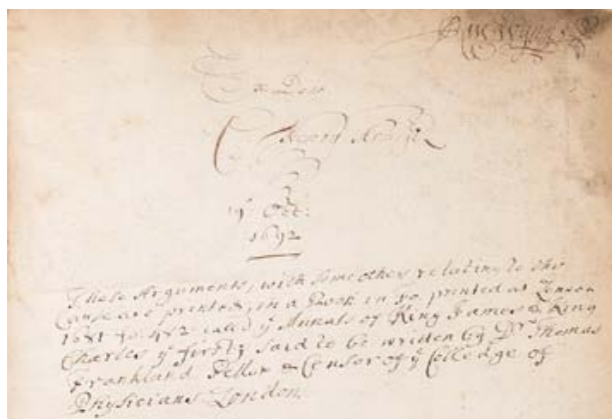 Henry
19º Oct:
1692
These Arguments, with some other relating to the
Cause are printed, in a Book in fo printed at London
1681 in 4&2 called ye Annals of King James & King
Charles ye first; said to be writen by Dr Thomas
Frankland Fellow & Censor of ye Colledge of
Physicians London.